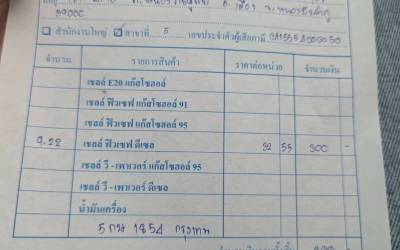 39000
☐ สำนักงานใหญ่ ☑ สาขาที่ 5 เลขประจำตัวผู้เสียภาษี
จำนวน รายการสินค้า ราคาต่อหน่วย จำนวนเงิน
เชลล์ E20 แก๊สโซฮอล์
เชลล์ ฟิวเซฟ แก๊สโซฮอล์ 91
เชลล์ ฟิวเซฟ แก๊สโซฮอล์ 95
9.22 เชลล์ ฟิวเซฟ ดีเซล 32 55 300 -
เชลล์ วี - เพาเวอร์ แก๊สโซฮอล์ 95
เชลล์ วี - เพาเวอร์ ดีเซล
น้ำมันเครื่อง
5 กน 1854 กรุงเทพ